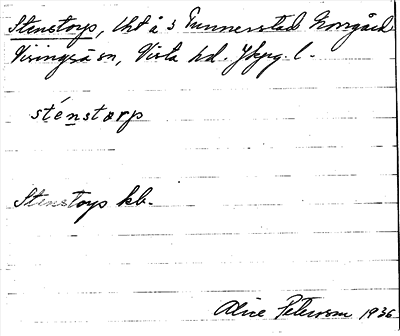 Stenstorp, lht å 3 Tunnerstad Norrgård
Visingsö sn, Vista hd. Jkpg. l.
sténstɷrp
Stenstorp kb.
Alice Peterson 1936